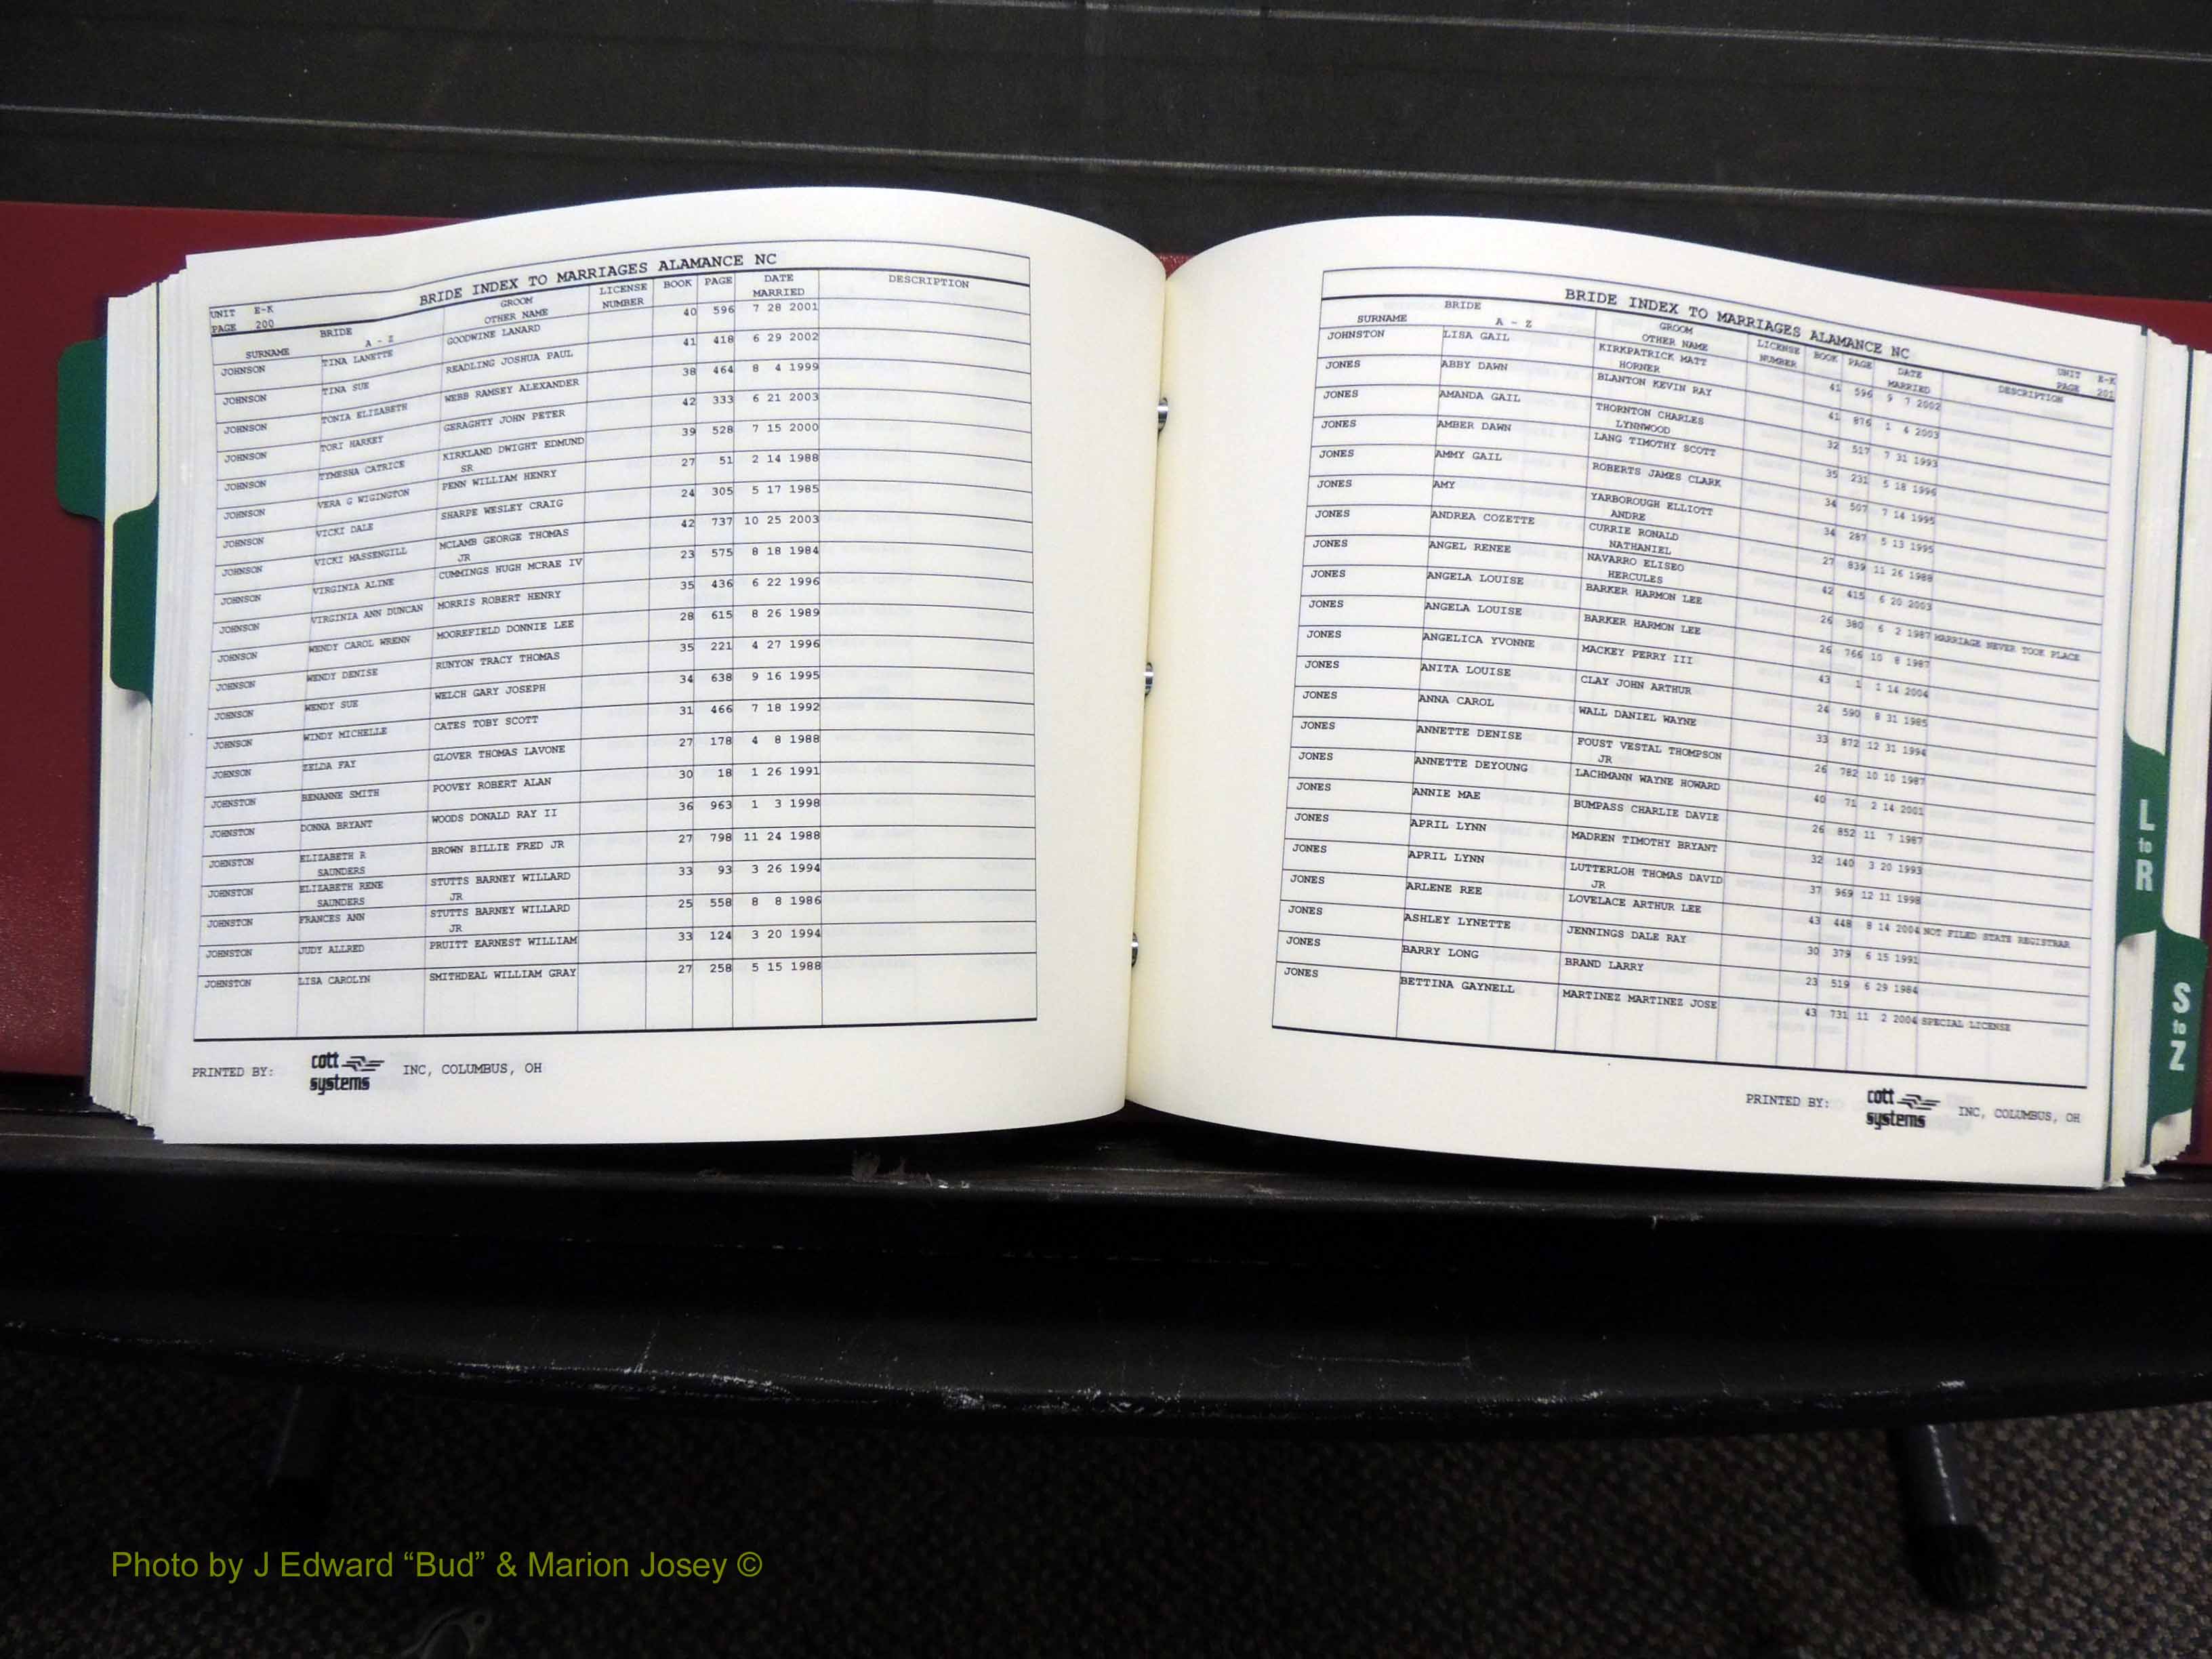 BRIDE INDEX TO MARRIAGES ALAMANCE NC
UNIT E-K
PAGE 200
BRIDE GROOM LICENSE BOOK PAGE DATE DESCRIPTION
SURNAME A - Z OTHER NAME NUMBER MARRIED
JOHNSON TINA LANETTE GOODWINE LANARD 40 596 7 28 2001
JOHNSON TINA SUE READLING JOSHUA PAUL 41 418 6 29 2002
JOHNSON TONIA ELIZABETH WEBB RAMSEY ALEXANDER 38 464 8 4 1999
JOHNSON TORI HARKEY GERAGHTY JOHN PETER 42 333 6 21 2003
JOHNSON TYNESHA CATRICE KIRKLAND DWIGHT EDMUND 39 528 7 15 2000
SR
JOHNSON VERA G WIGINGTON PENN WILLIAM HENRY 27 51 2 14 1988
JOHNSON VICKI DALE SHARPE WESLEY CRAIG 24 305 5 17 1985
JOHNSON VICKI MASSENGILL MCLAMB GEORGE THOMAS 42 737 10 25 2003
JR
JOHNSON VIRGINIA ALINE CUMMINGS HUGH MCRAE IV 23 575 8 18 1984
JOHNSON VIRGINIA ANN DUNCAN MORRIS ROBERT HENRY 35 436 6 22 1996
JOHNSON WENDY CAROL WRENN MOOREFIELD DONNIE LEE 28 615 8 26 1989
JOHNSON WENDY DENISE RUNYON TRACY THOMAS 35 221 4 27 1996
JOHNSON WENDY SUE WELCH GARY JOSEPH 34 638 9 16 1995
JOHNSON WINDY MICHELLE CATES TOBY SCOTT 31 466 7 18 1992
JOHNSON ZELDA FAY GLOVER THOMAS LAVONE 27 178 4 8 1988
JOHNSTON BENANNE SMITH POOVEY ROBERT ALAN 30 18 1 26 1991
JOHNSTON DONNA BRYANT WOODS DONALD RAY II 36 963 1 3 1998
JOHNSTON ELIZABETH R BROWN BILLIE FRED JR 27 798 11 24 1988
SAUNDERS
JOHNSTON ELIZABETH RENE STUTTS BARNEY WILLARD 33 93 3 26 1994
SAUNDERS JR
JOHNSTON FRANCES ANN STUTTS BARNEY WILLARD 25 558 8 8 1986
JR
JOHNSTON JUDY ALLRED PRUITT EARNEST WILLIAM 33 124 3 20 1994
JOHNSTON LISA CAROLYN SMITHDEAL WILLIAM GRAY 27 258 5 15 1988
PRINTED BY: cott systems INC, COLUMBUS, OH
BRIDE INDEX TO MARRIAGES ALAMANCE NC
UNIT E-K
PAGE 201
BRIDE GROOM LICENSE BOOK PAGE DATE DESCRIPTION
SURNAME A - Z OTHER NAME NUMBER MARRIED
JOHNSTON LISA GAIL KIRKPATRICK MATT 41 596 9 7 2002
HORNER
JONES ABBY DAWN BLANTON KEVIN RAY 41 876 1 4 2003
JONES AMANDA GAIL THORNTON CHARLES 32 517 7 31 1993
LYNNWOOD
JONES AMBER DAWN LANG TIMOTHY SCOTT 35 231 5 18 1996
JONES AMMY GAIL ROBERTS JAMES CLARK 34 507 7 14 1995
JONES AMY YARBOROUGH ELLIOTT 34 287 5 13 1995
ANDRE
JONES ANDREA COZETTE CURRIE RONALD 27 839 11 26 1988
NATHANIEL
JONES ANGEL RENEE NAVARRO ELISEO 42 415 6 20 2003
HERCULES
JONES ANGELA LOUISE BARKER HARMON LEE 26 380 6 2 1987 MARRIAGE NEVER TOOK PLACE
JONES ANGELA LOUISE BARKER HARMON LEE 26 766 10 8 1987
JONES ANGELICA YVONNE MACKEY PERRY III 43 1 1 14 2004
JONES ANITA LOUISE CLAY JOHN ARTHUR 24 590 8 31 1985
JONES ANNA CAROL WALL DANIEL WAYNE 33 872 12 31 1994
JONES ANNETTE DENISE FOUST VESTAL THOMPSON 26 782 10 10 1987
JR
JONES ANNETTE DEYOUNG LACHMANN WAYNE HOWARD 40 71 2 14 2001
JONES ANNIE MAE BUMPASS CHARLIE DAVIE 26 852 11 7 1987
JONES APRIL LYNN MADREN TIMOTHY BRYANT 32 140 3 20 1993
JONES APRIL LYNN LUTTERLOH THOMAS DAVID 37 969 12 11 1998
JR
JONES ARLENE REE LOVELACE ARTHUR LEE 43 448 8 14 2004 NOT FILED STATE REGISTRAR
JONES ASHLEY LYNETTE JENNINGS DALE RAY 30 379 6 15 1991
JONES BARRY LONG BRAND LARRY 23 519 6 29 1984
JONES BETTINA GAYNELL MARTINEZ MARTINEZ JOSE 43 731 11 2 2004 SPECIAL LICENSE
PRINTED BY: cott systems INC, COLUMBUS, OH
L to R
S to Z
Photo by J Edward “Bud” & Marion Josey ©